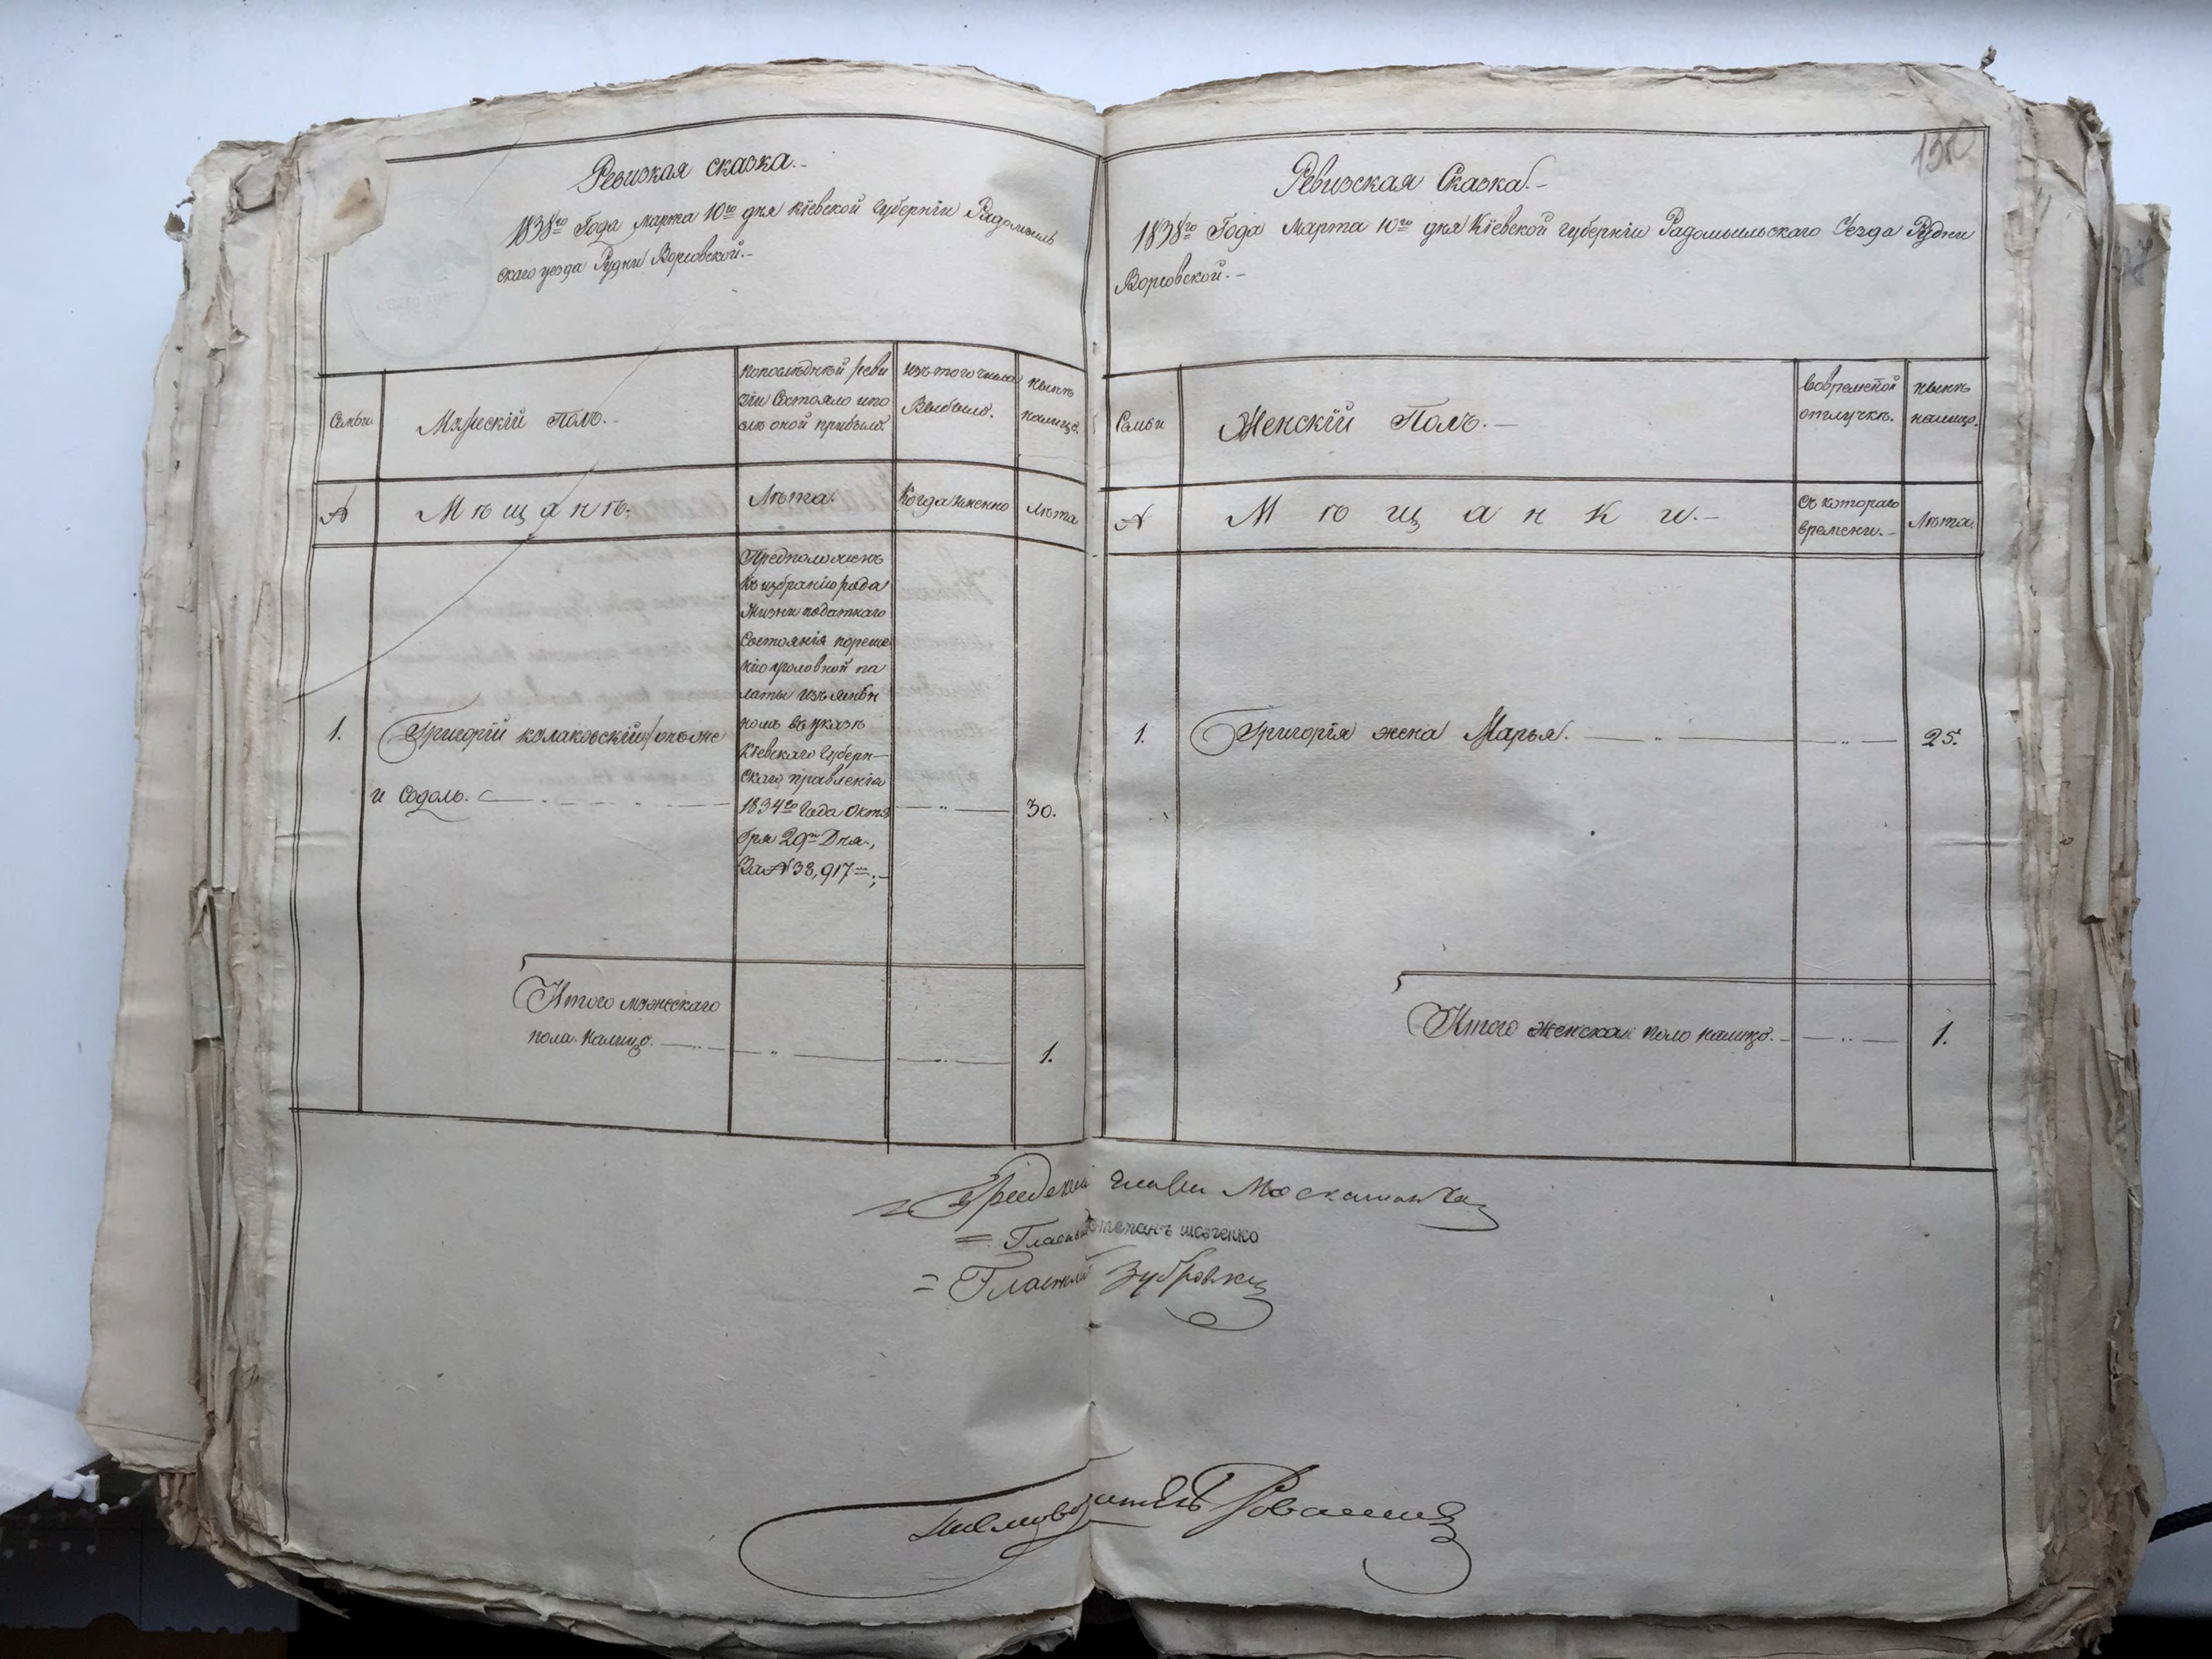 Ревизкая сказка.-
1838го Года марта 10го дня Кіевской губерніи Радомысль
скаго уезда Рудни Ворсовской.-
Семьи
Мужескій Полъ.-
попоследней реви
зіи Состояло и по
сле оной прибыло
изъ того числа
Выбыло.
ныне
налицо.
№
Мѣщанѣ.
Лѣта.
Когда именно
Лѣта
Предположенъ
къ избранію рода
жизни податнаго
Состоянія пореше
нію уголовной па
латы
въ указѣ
Кіевскаго Губерн-
скаго правленія
1834го Года Октя
бря 29го Дня.,
За № 38,917
1.
Григорій
и
30.
Итого мужескаго
пола налицо.
1.
Ревизская Сказка.-
1838го Года Марта 10го дня Кіевской губерніи Радомысльскаго Уезда Рудни
Ворсовской.-
Семьи
Женскій Полъ.-
отлучкѣ.
ныне
налицо.
№
Мѣщанки.-
Съ котораго
времени.-
Лѣта.
1.
Григорія жена Марья.
25.
Итого женска пола налицо.-
1.
Гласный Степанъ шевченко
Гласный